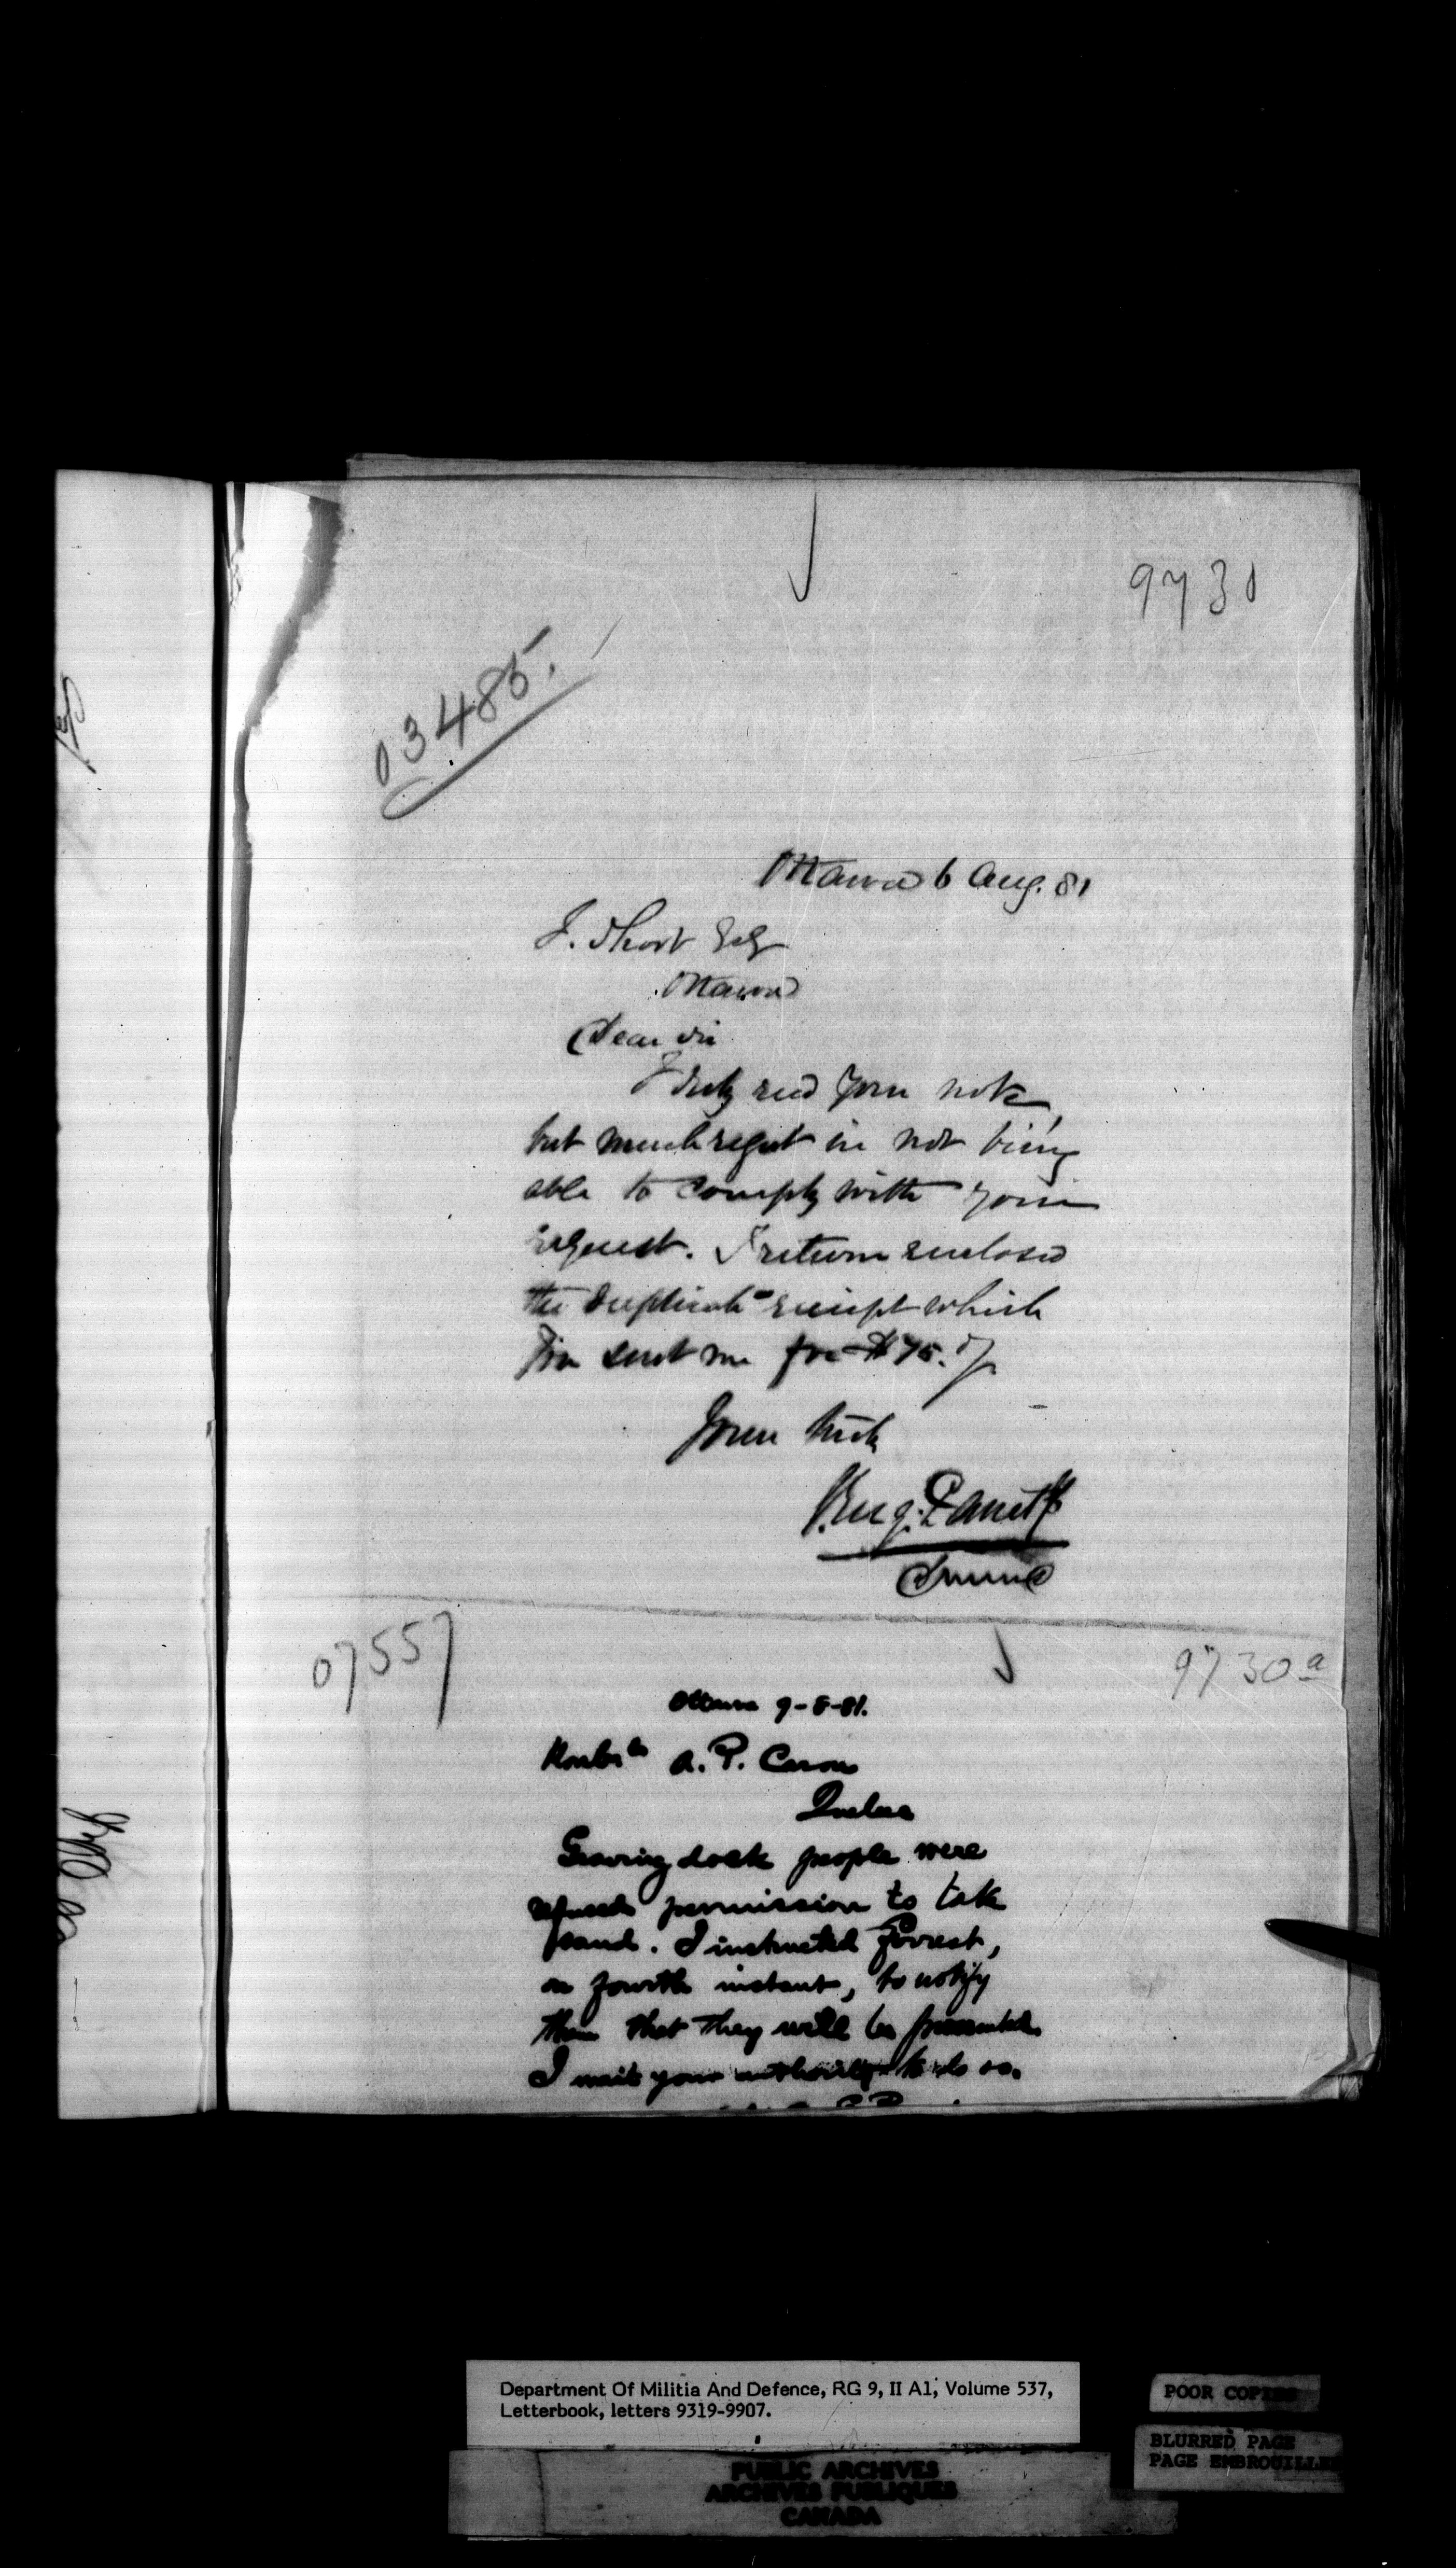 9730
03485.
Ottawa 6 Aug. 81
J. Short Esq
Ottawa
Dear Sir
I duly recd your note,
but much regret in not being
able to comply with your
request. I return enclosed
the duplicate receipt which
you sent me for $75.
Yours truly
Eug. Panet
DMMD
07557
9730a
Ottawa 9-8-81.
Honble A. P. Caron
Quebec
Graving dock people were
refused permission to take
sand. I instructed Forrest,
on fourth instant, to notify
them that they will be prosecuted.
I wait your authority to do so.
Department Of Militia And Defence, RG 9, II A1, Volume 537,
Letterbook, letters 9319-9907.
POOR COPIES
BLURRED PAGE
PAGE EMBROUILLEE
PUBLIC ARCHIVES
ARCHIVES PUBLIQUES
CANADA